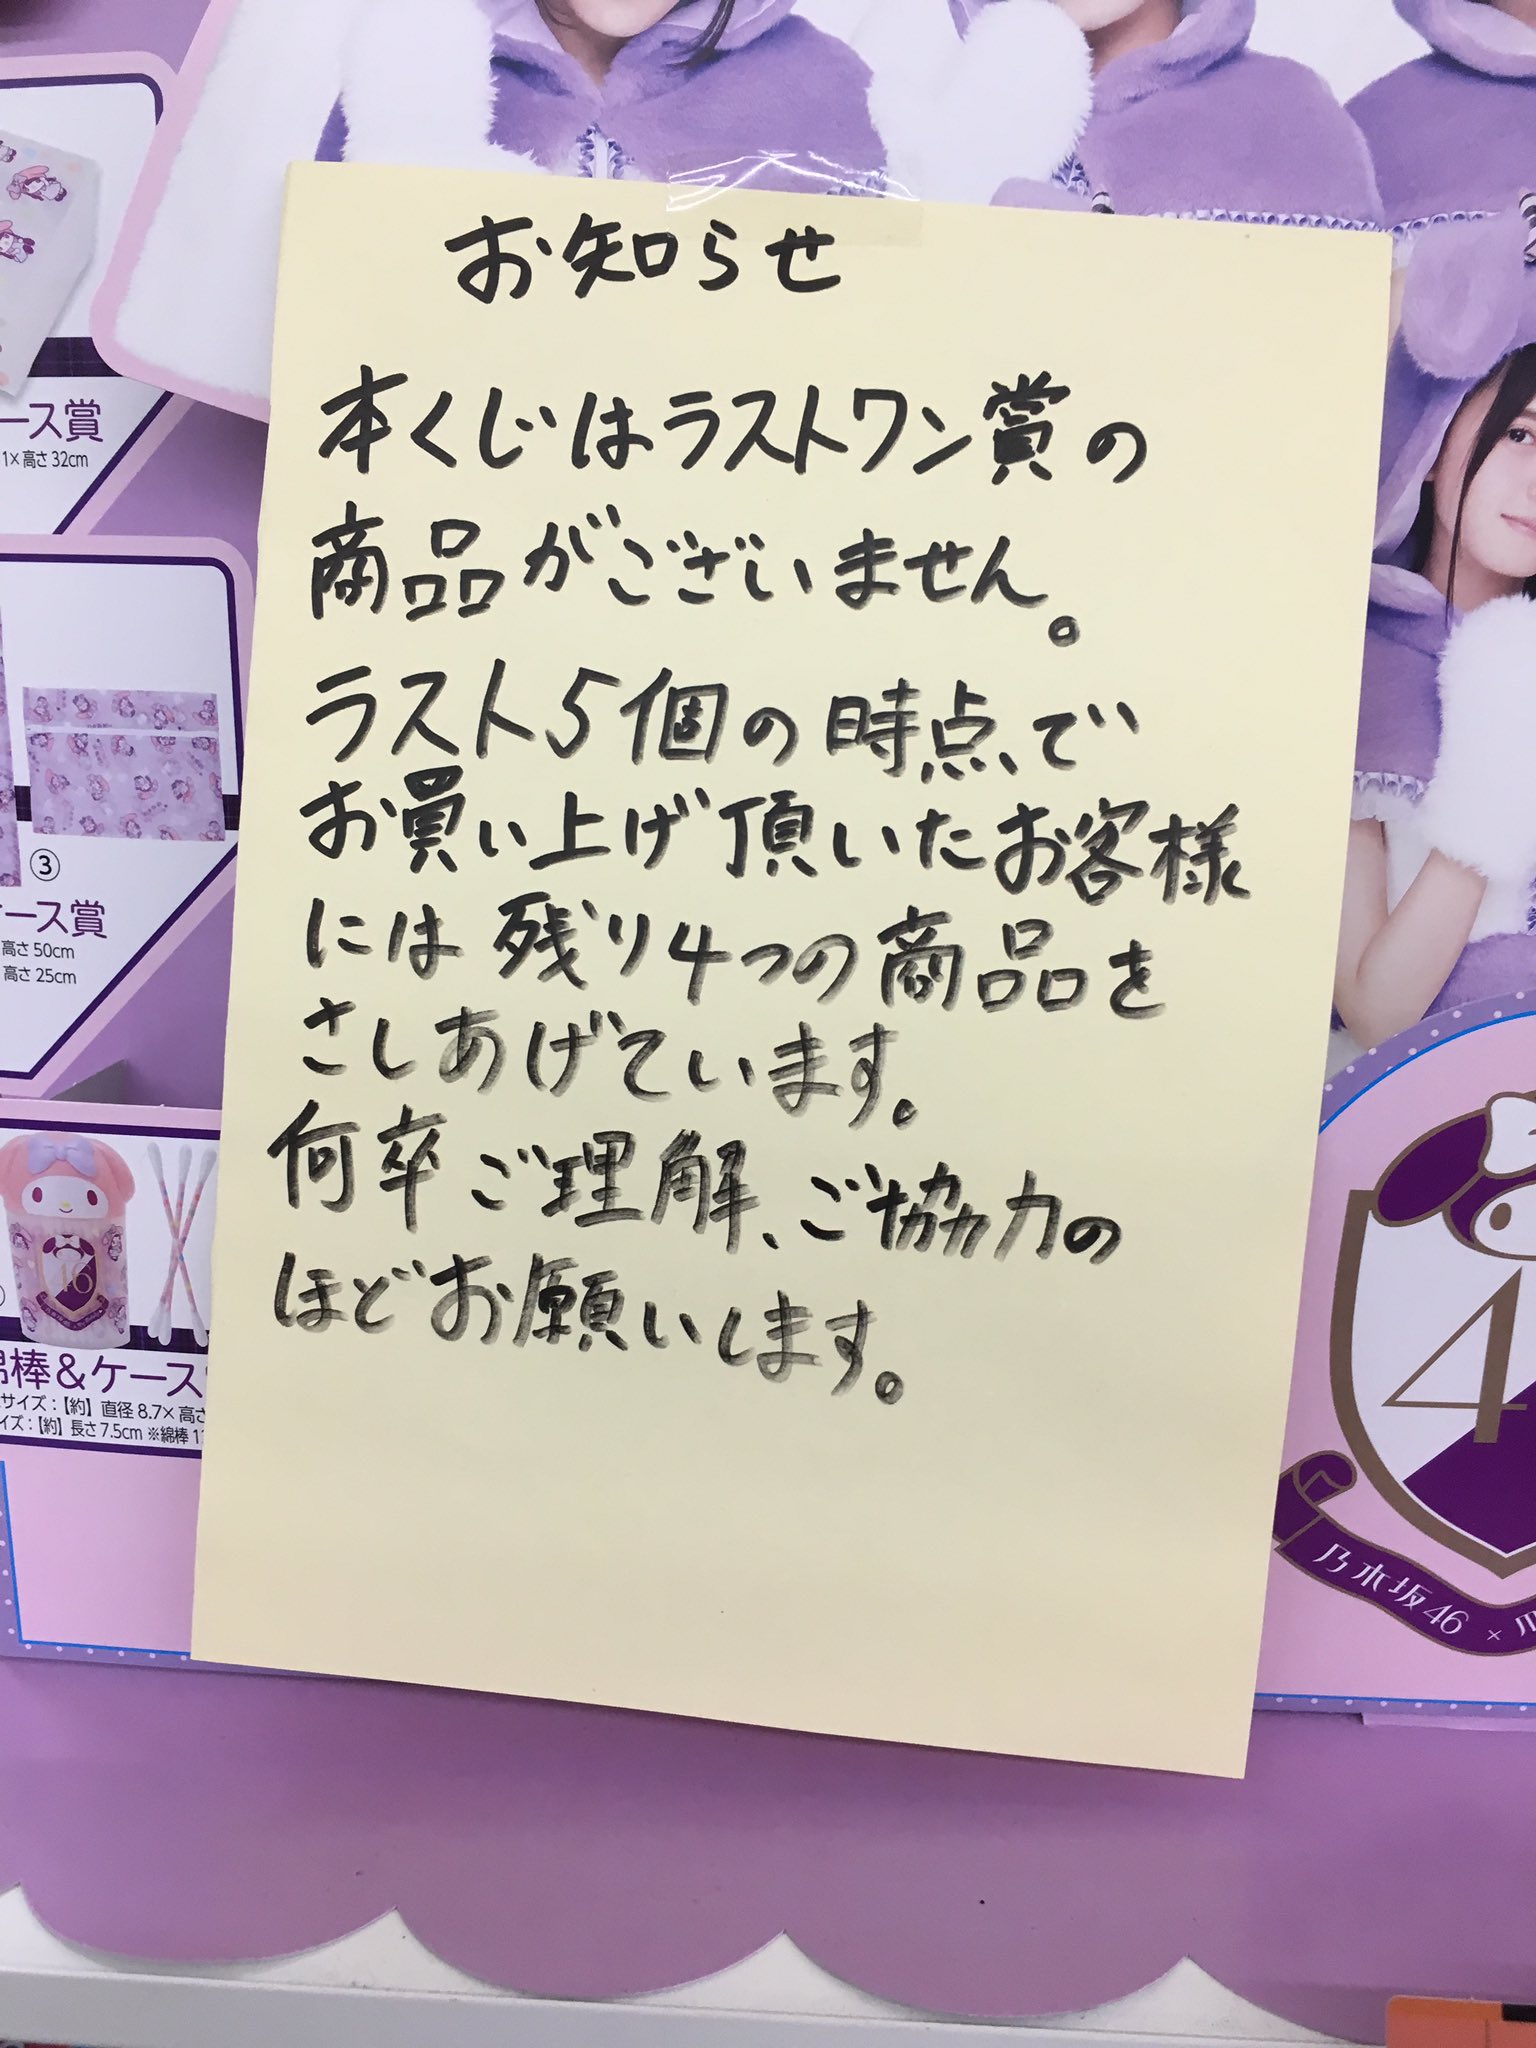 お知らせ
本くじはラストワン賞の
商品がございません。
ラスト5個の時点で
お買い上げ頂いたお客様
には残り4つの商品を
さしあげています。
何卒ご理解、ご協力の
ほどお願いします。
ース賞
1×高さ32cm
③
ケース賞
高さ50cm
高さ25cm
46
綿棒&ケース
サイズ:【約】直径8.7×高さ
イズ:【約】長さ7.5cm ※綿棒1
4
乃木坂46 ×